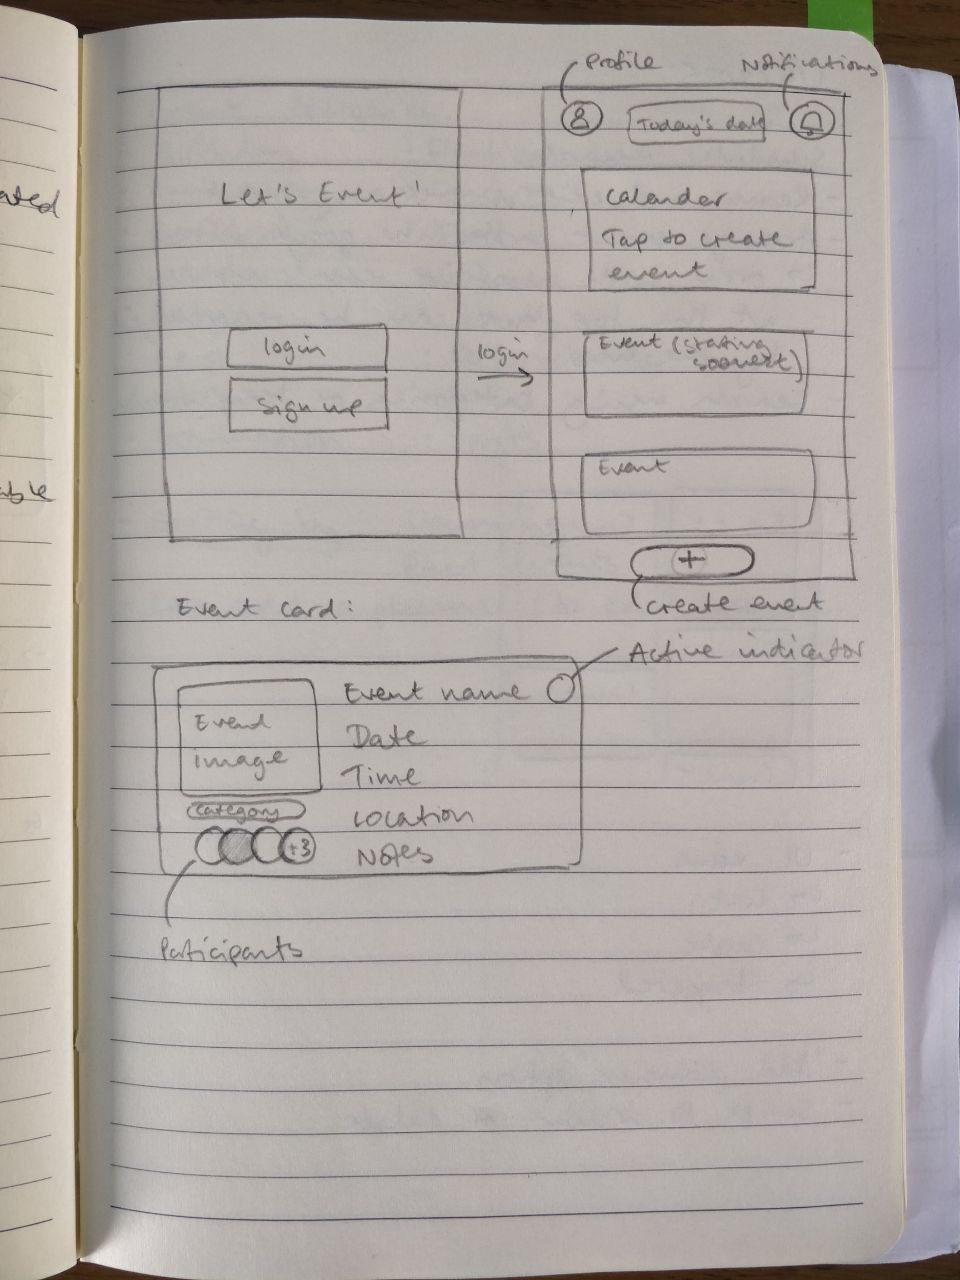 ated
able
Profile
Notifications
Today's date
Let's Event!
calander
Tap to create
event
login
sign up
login
Event (stating
soonest)
Event
+
create event
Event card:
Active indicator
Event name
Event
image
Date
Time
category
Location
+3
Notes
Participants